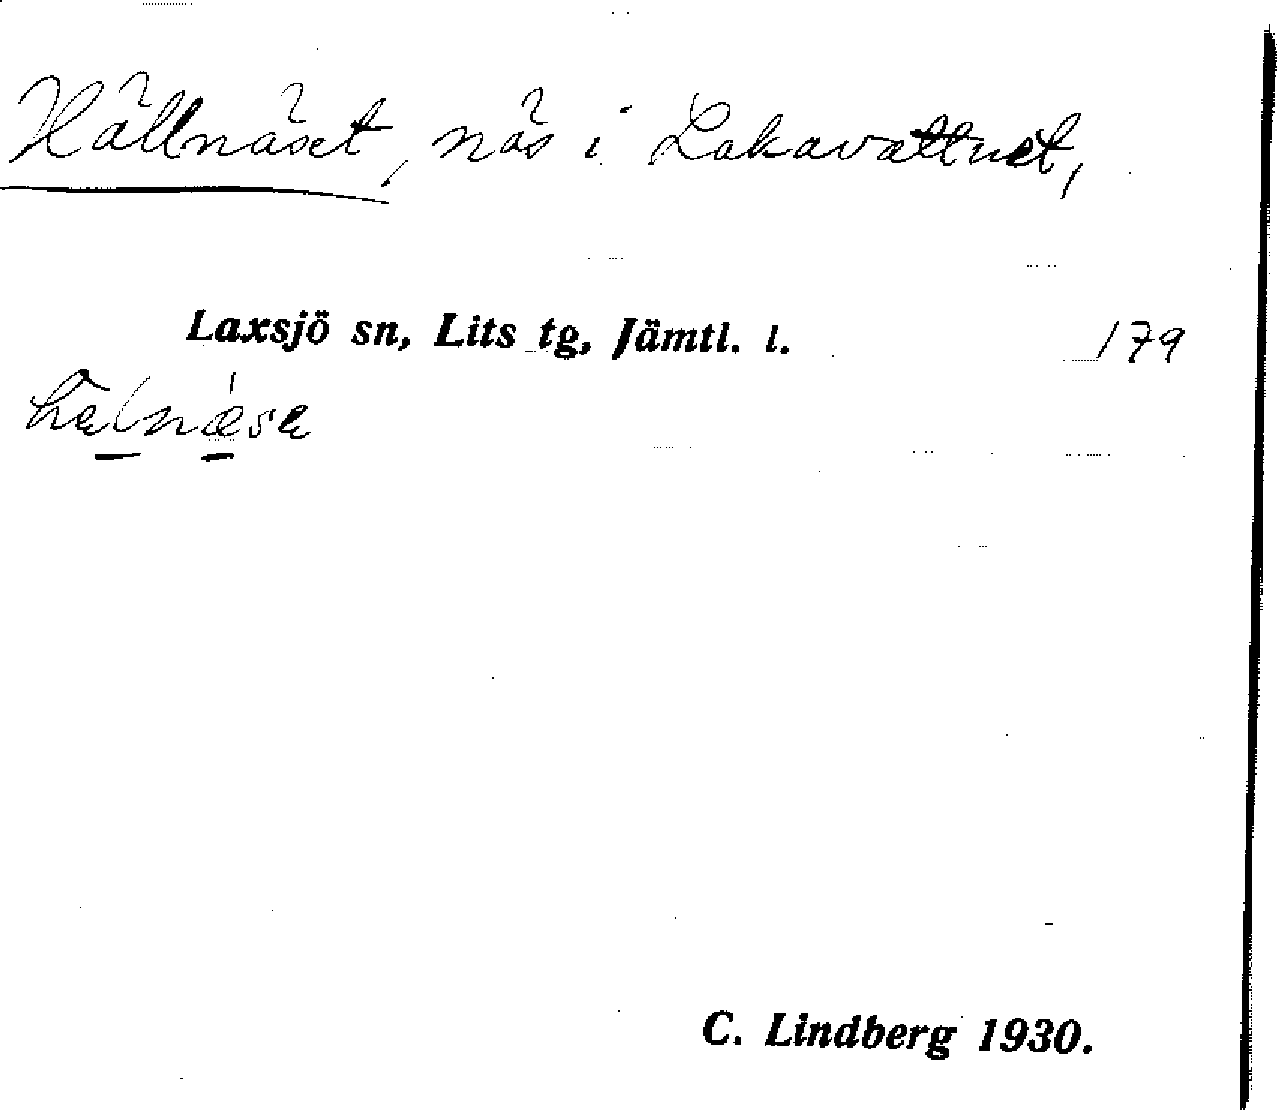 Hällnäset, näs i Lakavattnet,
Laxsjö sn, Lits tg, Jämtl. l. 179
C. Lindberg 1930.